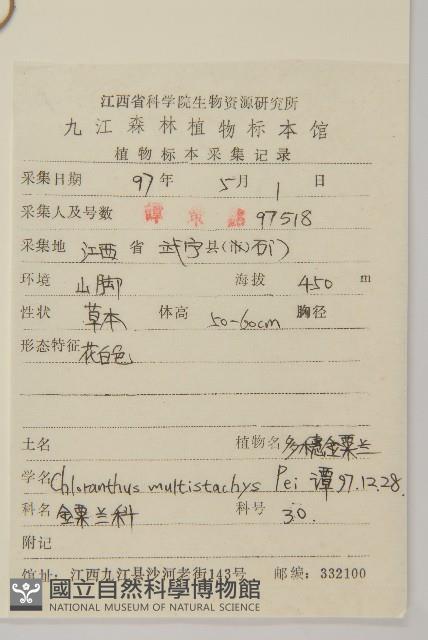 江西省科学院生物资源研究所
九江森林植物标本馆
植物标本采集记录
采集日期 97年 5月 1 日
采集人及号数 谭策铭 97518
采集地 江西 省 武宁县(石门)
环境 山脚 海拔 450 m
性状 草本 体高 50-60cm 胸径
形态特征 花白色
土名 植物名 多穗金粟兰
学名 Chloranthus multistachys Pei 谭 97.12.28.
科名 金粟兰科 科号 30.
附记
馆址: 江西九江县沙河老街143号 邮编: 332100
國立自然科學博物館
NATIONAL MUSEUM OF NATURAL SCIENCE